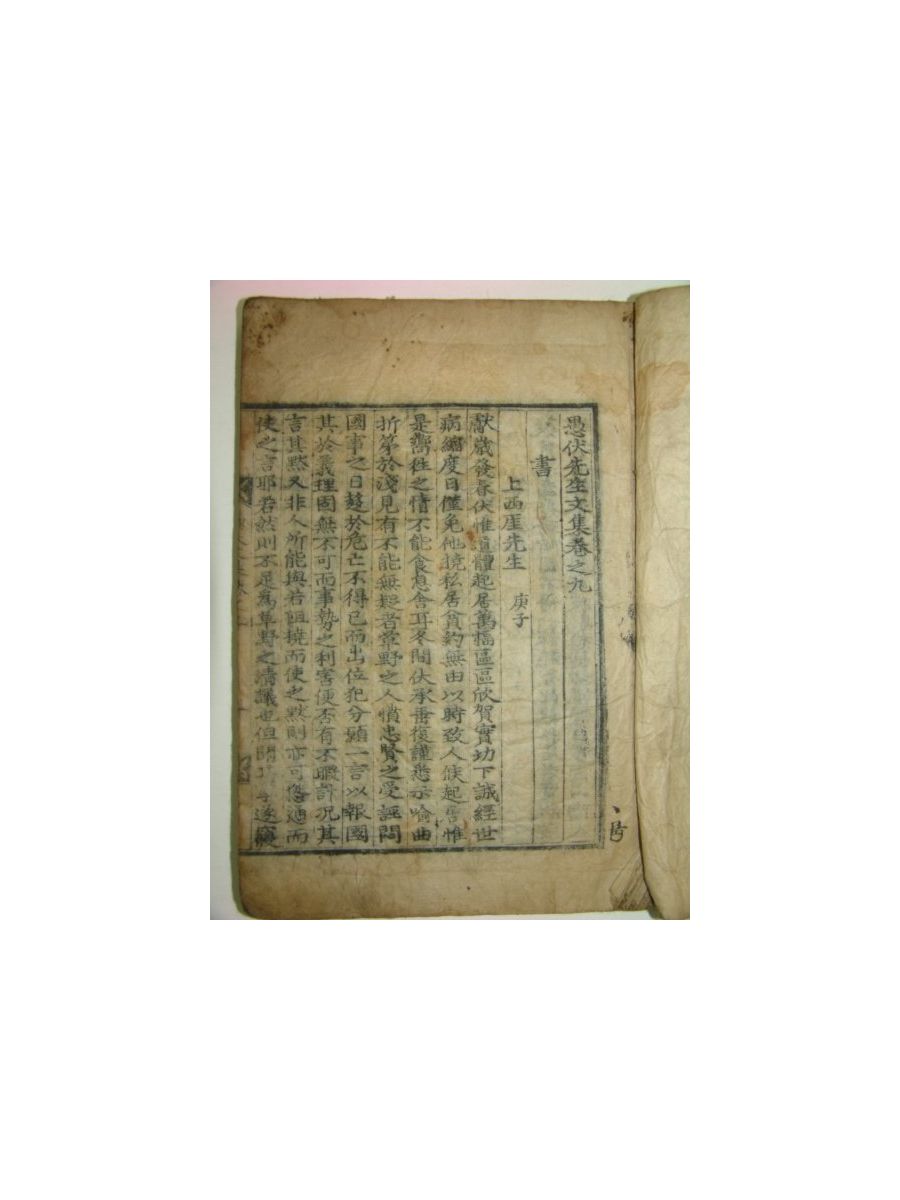 愚伏先生文集卷之九
書
上西厓先生 庚子
獻歲發春伏惟道體起居萬福區區欣賀實切下誠經世
病縮度日僅免他撓私居貧約無由以時致人候起居惟
是嚮往之情不能食息舍耳冬間伏承垂復謹悉示喻曲
折第於淺見有不能無疑者草野之人憤忠賢之受誣悶
國事之日趍於危亡不得已而出位犯分願一言以報國
其於義理固無不可而事勢之利害便否有不暇計況其
言其默又非人所能與若沮撓而使之默則亦可慫通而
使之言耶若然則不足爲草野之淸議也但聞